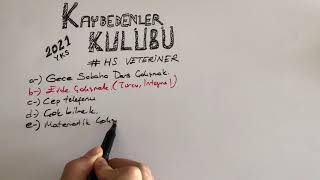 KAYBEDENLER
KULÜBÜ
2021
YKS
# HS VETERİNER
a-) Gece Sabaha Ders Çalışmak.
b-) Evde Çalışmak. (Türev, İntegral)
c-) Cep telefonu
d-) Çok bilmek.
e-) Matematik Çalış